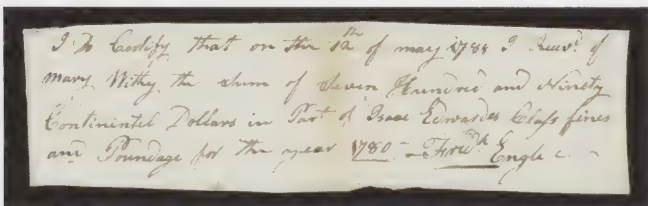 I Do Certify that on the 12th of may 1781 I Recevd. of
mary Withy the Sum of Eleven Hundred and Ninety
Continentel Dollars in Part of Isaac Edwardes Class fines
and Poundage for the year 1780 - Fredk Engle C. -